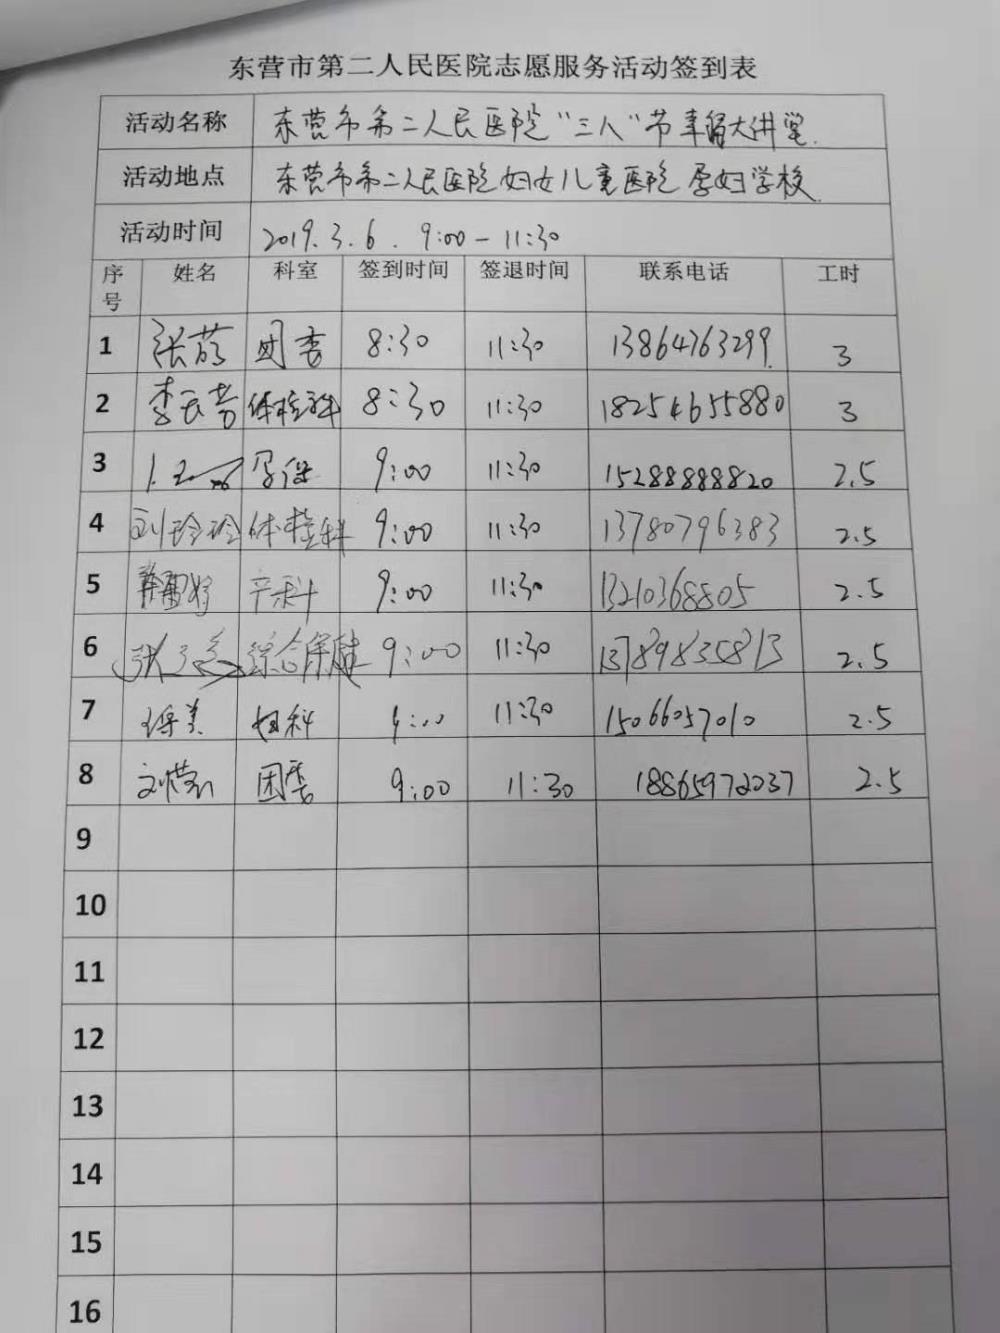 东营市第二人民医院志愿服务活动签到表
活动名称 东营市第二人民医院"三八"节幸福大讲堂.
活动地点 东营市第二人民医院妇女儿童医院孕妇学校.
活动时间 2019.3.6. 9:00-11:30
序号 姓名 科室 签到时间 签退时间 联系电话 工时
1 张 团委 8:30 11:30 13864763299 3
2 李云芳 体检科 8:30 11:30 18254655880 3
3 孕保 9:00 11:30 15288888820 2.5
4 刘玲玲 体检科 9:00 11:30 13780796383 2.5
5 产科 9:00 11:30 13210368805 2.5
6 张 综合保健 9:00 11:30 13789835813 2.5
7 妇科 9:00 11:30 15066057010 2.5
8 刘 团委 9:00 11:30 18865972037 2.5
9
10
11
12
13
14
15
16